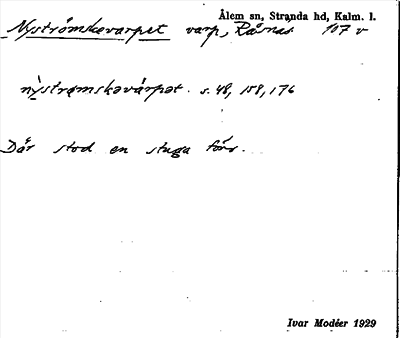 Ålem sn, Stranda hd, Kalm. l.
Nyströmskevarpet varp, Råsnäs 107 v
nỳstrømskəvárpət. s. 48, 158, 176
Där stod en stuga förr.
Ivar Modéer 1929